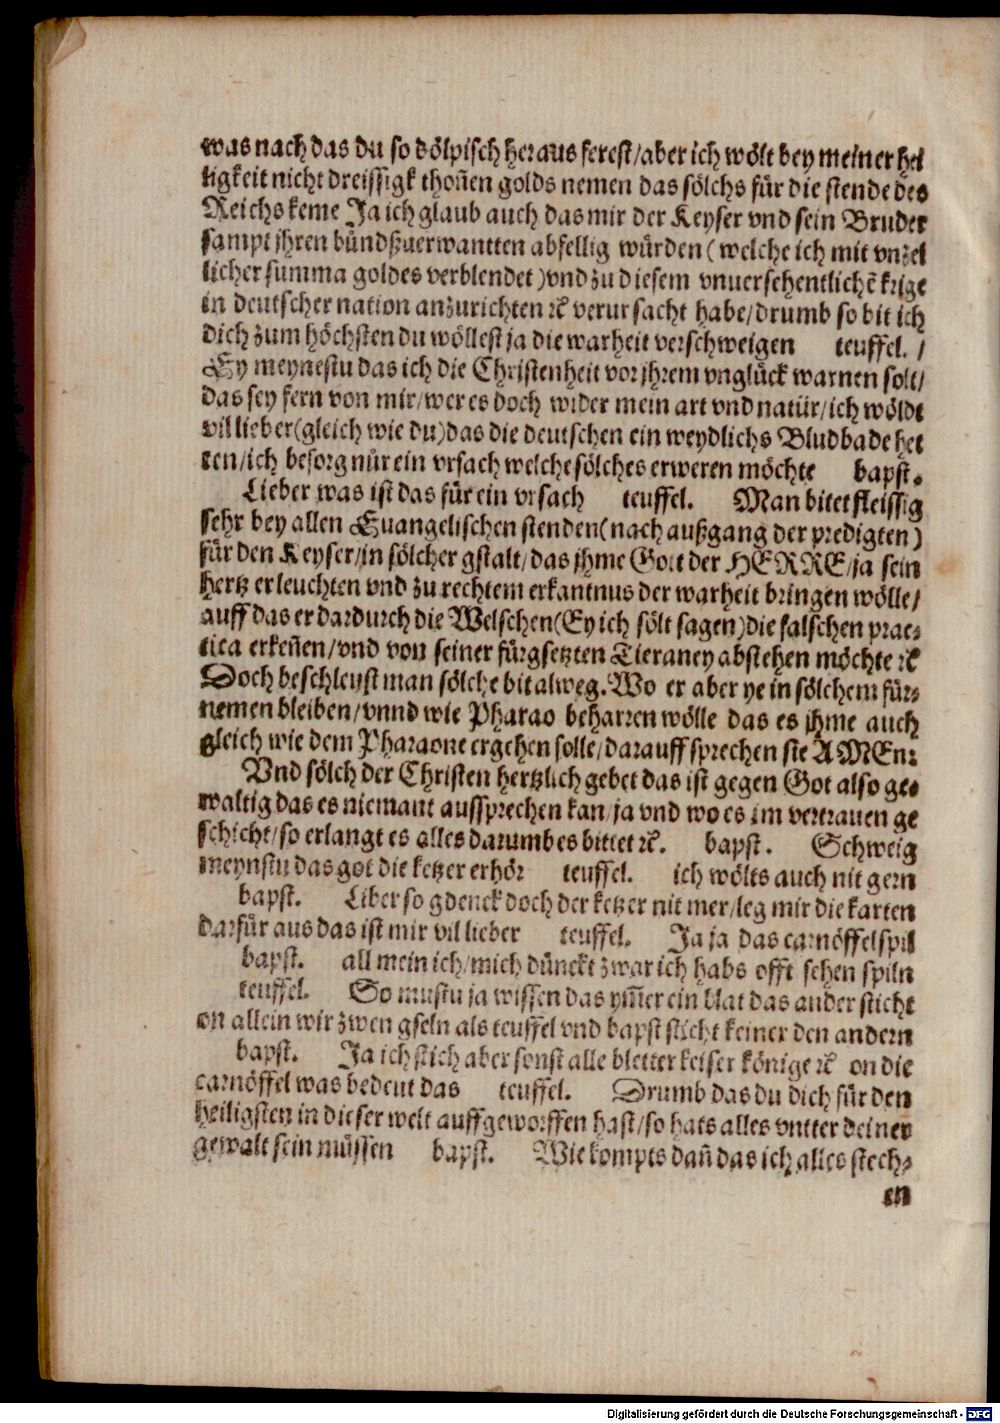 was nach das du so dölpisch heraus ferest/aber ich wölt bey meiner hei
ligkeit nicht dreissigk thoñen golds nemen das sölchs für die stende des
Reichs keme Ja ich glaub auch das mir der Keyser vnd sein Bruder
sampt jhren bündßuerwantten abfellig würden ( welche ich mit vnzel
licher summa goldes verblendet ) vnd zu diesem vnuersehentlichē krige
in deutscher nation anzurichten ꝛc̄ verursacht habe/drumb so bit ich
dich zum höchsten du wöllest ja die warheit verschweigen teuffel. /
Ey meynestu das ich die Christenheit vor jhrem vnglück warnen solt/
das sey fern von mir/wer es doch wider mein art vnd natür/ich wöldt
vil lieber(gleich wie du)das die deutschen ein weydlichs Bludbade het
ten/ich besorg nür ein vrsach welche sölches erweren möchte bapst.
Lieber was ist das für ein vrsach teuffel. Man bitet fleissig
sehr bey allen Euangelischen stenden(nach außgang der predigten)
für den Keyser/in sölcher gstalt/das jhme Gott der HERRE/ja sein
hertz erleuchten vnd zu rechtem erkantnus der warheit bringen wölle/
auff das er dardurch die Welschen(Ey ich sölt sagen)die falschen prac⸗
tica erkeñen/vnd von seiner fürgsetzten Tieraney abstehen möchte ꝛc̄
Doch beschleust man sölche bit alweg. Wo er aber ye in sölchem für⸗
nemen bleiben/vnnd wie Pharao beharren wölle das es jhme auch
gleich wie dem Pharaone ergehen solle/darauff sprechen sie AMEn:
Vnd sölch der Christen hertzlich gebet das ist gegen Got also ge⸗
waltig das es niemant aussprechen kan/ja vnd wo es im vertrauen ge
schicht/so erlangt es alles darumb es bittet ꝛc̄. bapst. Schweig
meynstu das got die ketzer erhör teuffel. ich wölts auch nit gern
bapst. Liber so gdenck doch der ketzer nit mer/leg mir die karten
darfür aus das ist mir vil lieber teuffel. Ja ja das carnöffelspil
bapst. all mein ich/mich dünckt zwar ich habs offt sehen spiln
teuffel. So mustu ja wissen das ym̃er ein blat das ander sticht
on allein wir zwen gseln als teuffel vnd bapst sticht keiner den andern
bapst. Ja ich stich aber sonst alle bletter keiser könige ꝛc̄ on die
carnöffel was bedeut das teuffel. Drumb das du dich für den
heiligsten in dieser welt auffgeworffen hast/so hats alles vntter deiner
gewalt sein müssen bapst. Wie kompts dañ das ich alles stech⸗
en
Digitalisierung gefördert durch die Deutsche Forschungsgemeinschaft - DFG